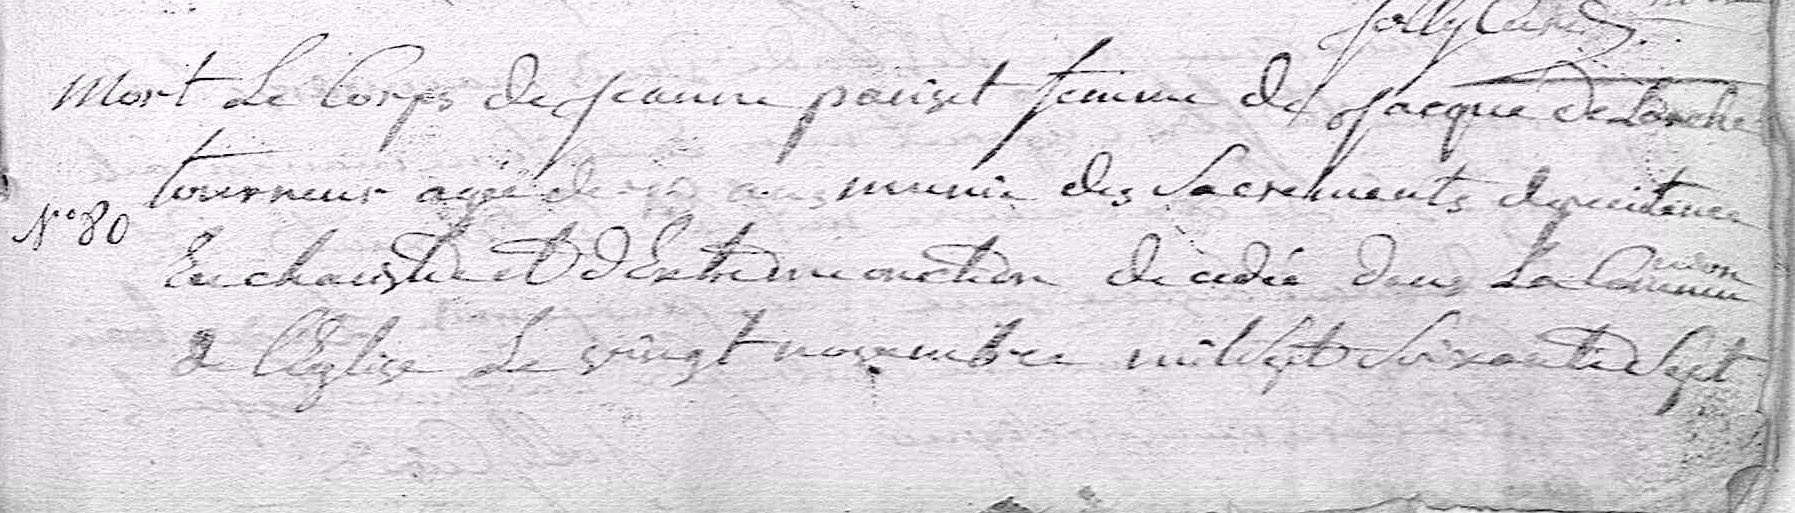 Jolly Curé
Mort Le Corps de Jeanne poiuset femme de Jacque Delarche
N° 80
tourneur ageé de ans munie des Sacrements de penitence
Euchaustie et d'Extreme onction decedeé dans La Communion
de l'Eglise Le vingt novembre mil Sept Soixante Sept